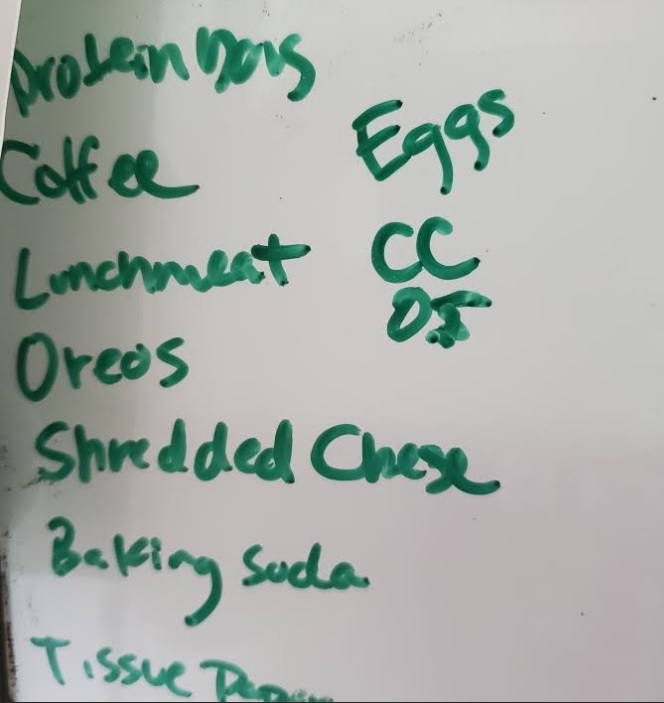 Protein bars
Coffee
Lunchmeat
Oreos
Shredded Chese
Baking soda
Tissue Paper
Eggs
CC
OJ